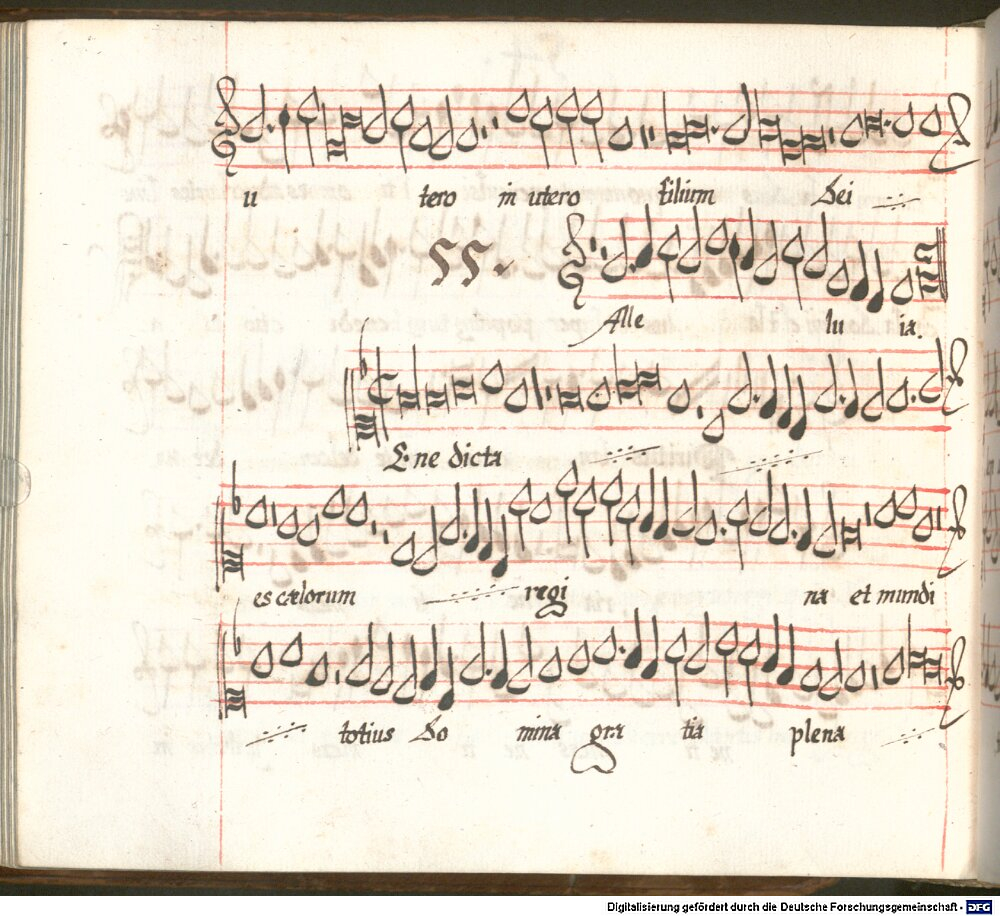 u tero in utero filium Dei
55.
Alle lu ia.
Bene dicta
es cœlorum regi na et mundi
totius Do mina gra tia plena
Digitalisierung gefördert durch die Deutsche Forschungsgemeinschaft - DFG